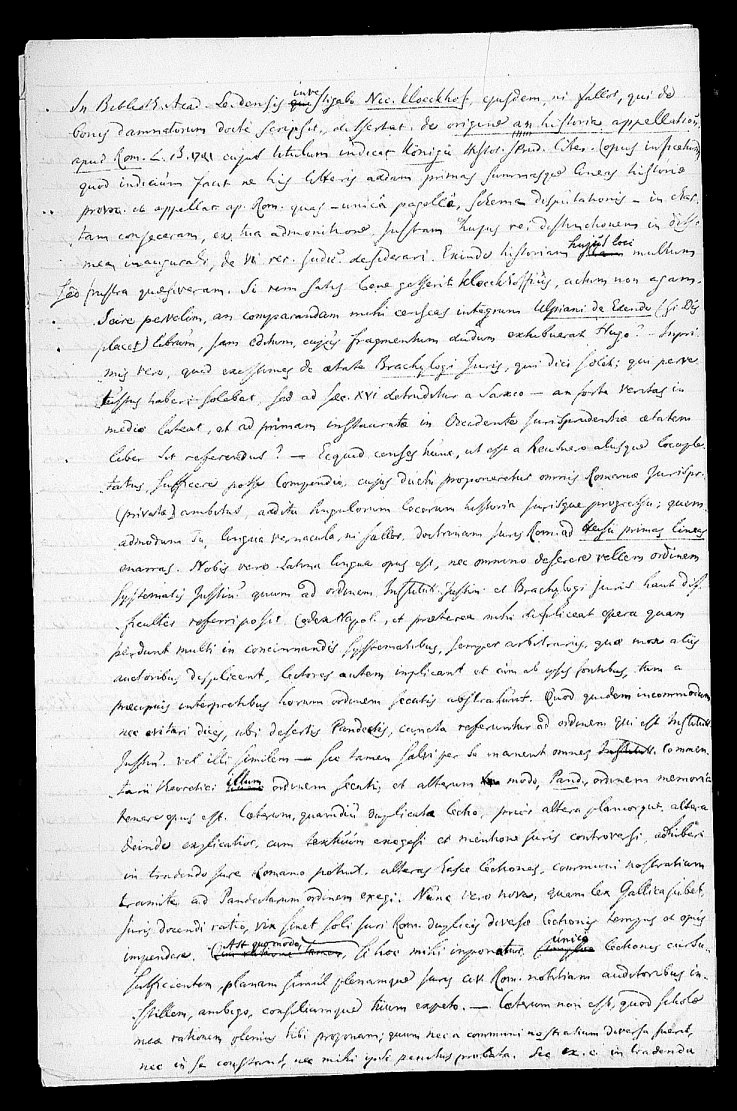 In Biblioth. Acad. Leidensis investigabo Nec. Kloeckhof, ejusdem, ni fallor, qui de
bonis damnatorum docte scripsit, dissertat. de origine an historia appellation.
apud Rom. L. B. 1741 cujus titulum indicat König
quod indicium facit ne his litteris addam primas summasque lineas historiae
provoc. et appellat. ap. Rom. quas – unica pagella, schema disputationis – in char-
tam conjeceram, ex tua admonitione, justam hujus rei destinctionem in diss.
mea inaugurali, de vi rer. judic. desiderari. Exinde historiam hujus loci multum
sed frustra quaesiveram. Si rem satis bene gesserit Kloeckhoffius, actum non agam.
Scire pervelim, an comparandam mihi censeas integrum Ulpiani de Edendo (si Dis
placet) librum, jam editum, cujus fragmentum dudum exhibuerat Hugo? Inpri-
mis vero, quid existimes de aetate Brachylogi Juris, qui dici solet; qui perve-
tustus haberi solebat, sed ad sec. XVI detruditur a Saxio – an forte veritas in
medio lateat, et ad primam instaurata in Occidente Jurisprudentiae aetatem
liber sit referendus? – Ecquid censes hunc, ut est a Reuterо aliisque locuple-
tatus, sufficere posse Compendio, cujus ductu proponeretur omnis Romanae Jurispr.
(privatae) ambitus, addita singulorum locorum historia jurisque progressu; quem-
admodum Tu, lingua vernacula, ni fallor, doctrinam juris Rom. ad primas lineas
enarras. Nobis vero Latina lingua opus est, nec omnino deserere vellem ordinem
systematis Justin. quum ad ordinem Institut. Justin. et Brachylogi Juris haut dif-
ficulter referri possit Codex Napol., et praeterea mihi displiceat opera quam
perdunt multi in concinnandis systematibus, semper arbitrariis, quae mox aliis
auctoribus displicent, lectores autem implicant et cum ab ipsis fontibus, tum a
praecipuis interpretibus horum ordinem secutis abstrahunt. Quod quidem incommodum
nec evitari dices, ubi desertis Pandectis, cuncta referuntur ad ordinem qui est Institut.
Justin. vel illi similem – sec tamen salvi per se manent omnes Commen-
tarii theoretici illum ordinem secuti; et alterum modo, Pand., ordinem memoria
tenere opus est. Caeterum, quamdiu duplicata lectio, prius altera planior, altera
deinde explicatior, cum textuum exegesi et mentione juris controversi, adhiberi
in tradendo jure Romano potuit, alteras hasce lectiones, communi nostratium
tramite, ad Pandectarum ordinem exegi. Nunc vero nova, quam lex Gallica jubet,
juris docendi ratio, vix sinet soli juri Rom. duplicis diversae lectionis tempus ac opus
impendere. Ast quomodo, si hoc mihi imponatur, unico lectionis cursu
sufficientem, planam simul plenamque juris civ. Rom. notitiam auditoribus in-
stillem, ambigo, consiliumque tuum expeto. – Caeterum non est, quod scholae
meae rationem plenius tibi proponam; quum nec a communi nostratium diversa fuerit,
nec in se constaret, nec mihi ipsi penitus probata. Sec in tradendo